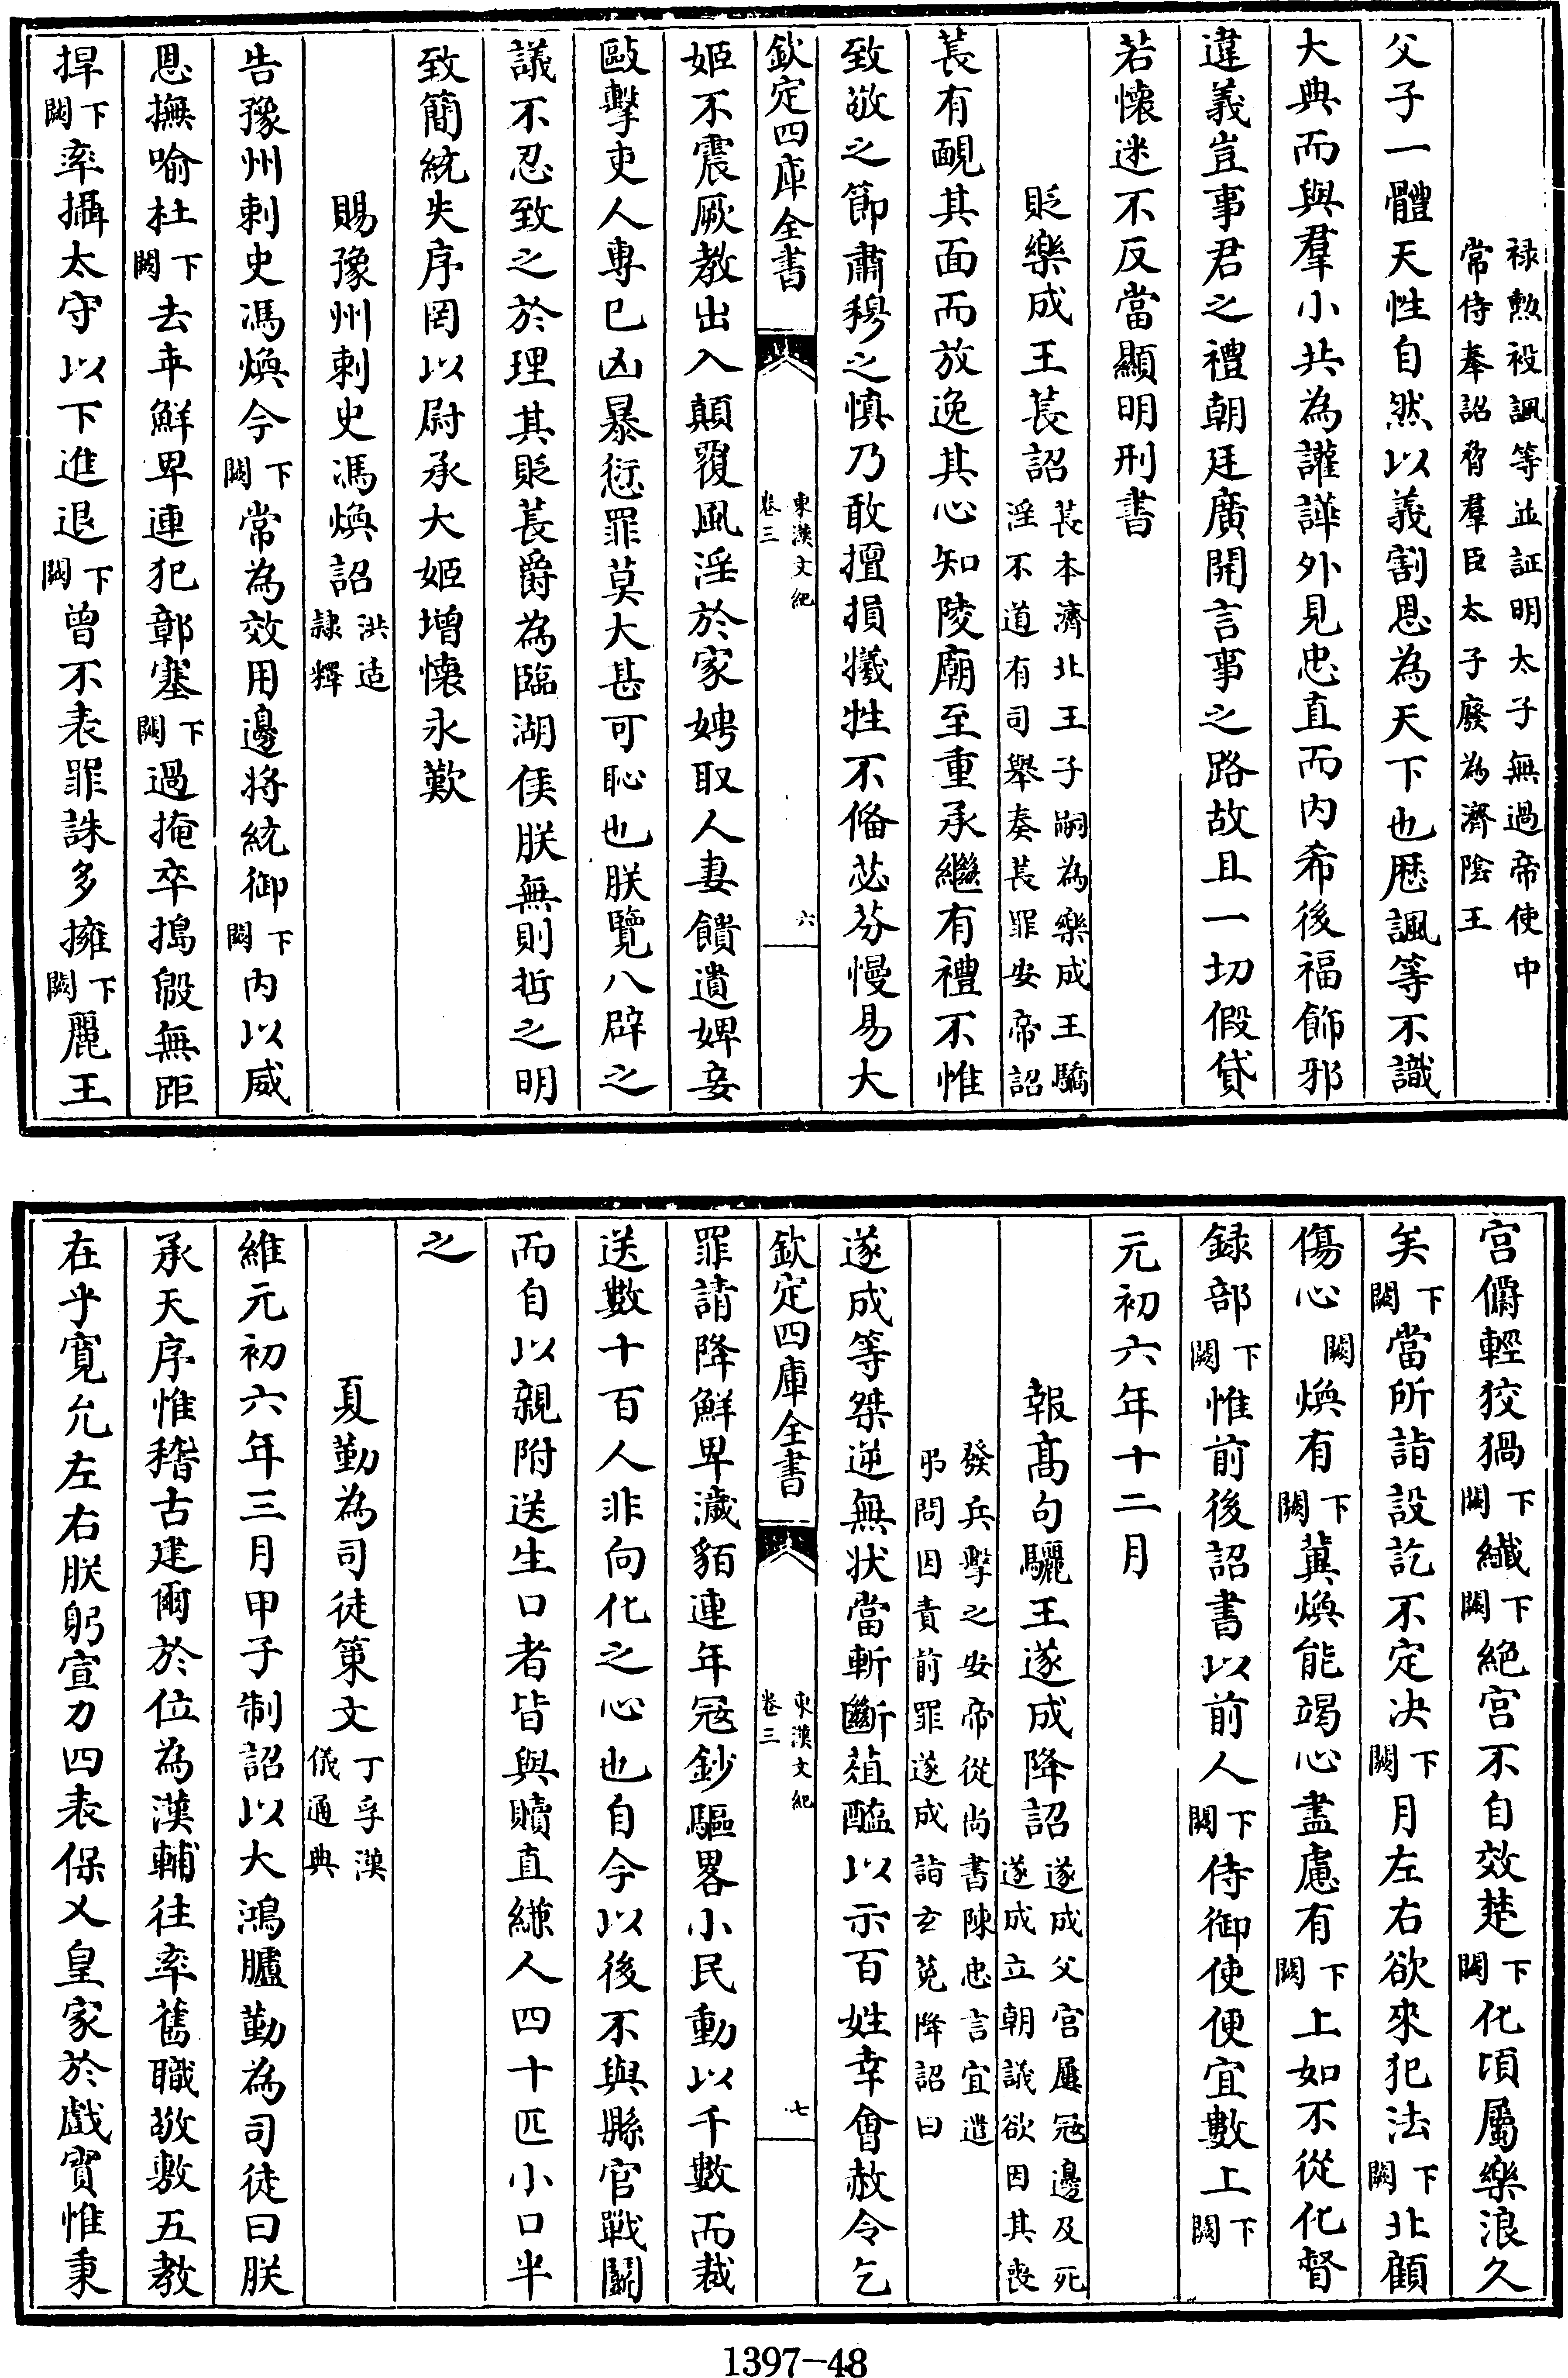 禄勲祋諷等並証明太子無過帝使中
常侍奉詔脅羣臣太子廢為濟陰王
父子一體天性自然以義割恩為天下也厯諷等不識
大典而與羣小共為讙譁外見忠直而内希後福飾邪
違義豈事君之禮朝廷廣開言事之路故且一切假貸
若懐迷不反當顯明刑書
貶樂成王萇詔
萇本濟北王子嗣為樂成王驕
淫不道有司舉奏萇罪安帝詔
萇有靦其面而放逸其心知陵廟至重承繼有禮不惟
致敬之節肅穆之慎乃敢擅損犧牲不偹苾芬慢易大
欽定四庫全書
東漢文紀
卷三
六
姬不震厥教出入顛覆風淫於家娉取人妻饋遺婢妾
敺擊吏人專已凶暴愆罪莫大甚可恥也朕覽八辟之
議不忍致之於理其貶萇爵為臨湖侯朕無則哲之明
致簡統失序罔以尉承大姬增懐永歎
賜豫州刺史馮煥詔
洪适
隷釋
告豫州刺史馮煥今下闕常為效用邊将統御下闕内以威
恩撫喻杜下闕去年鮮卑連犯鄣塞下闕過掩卒搗殷無距
捍下闕率攝太守以下進退下闕曾不表罪誅多擁下闕麗王
宫儶輕狡猾下闕纖下闕絶宫不自效楚下闕化頃屬樂浪久
矣下闕當所詣設訖不定决下闕月左右欲來犯法下闕北顧
傷心闕煥有下闕冀煥能竭心盡慮有下闕上如不從化督
録部下闕惟前後詔書以前人下闕侍御使便宜數上下闕
元初六年十二月
報髙句驪王遂成降詔
遂成父宫屢冦邊及死
遂成立朝議欲因其喪
發兵擊之安帝從尚書陳忠言宜遣
弔問因責前罪遂成詣玄菟降詔曰
遂成等桀逆無状當斬斷葅醢以示百姓幸會赦令乞
欽定四庫全書
東漢文紀
卷三
七
罪請降鮮卑濊貊連年冦鈔驅畧小民動以千數而裁
送數十百人非向化之心也自今以後不與縣官戰鬭
而自以親附送生口者皆與贖直縑人四十匹小口半
之
夏勤為司徒䇿文
丁孚漢
儀通典
維元初六年三月甲子制詔以大鴻臚勤為司徒曰朕
承天序惟稽古建爾於位為漢輔往率舊職敬敷五教
在乎寛允左右朕躬宣力四表保乂皇家於戯實惟秉
1397—48